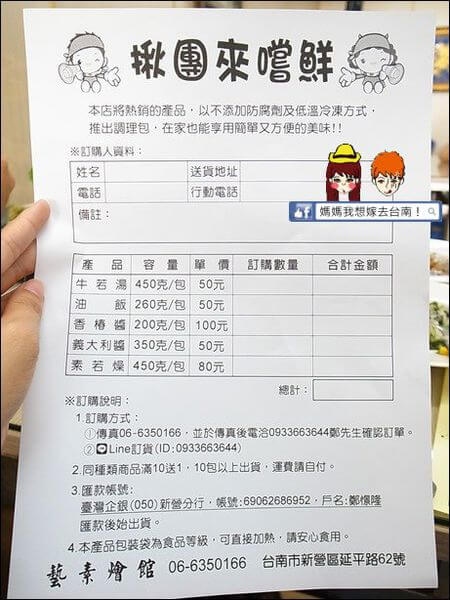 揪團來嚐鮮
本店將熱銷的產品，以不添加防腐劑及低溫冷凍方式，
推出調理包，在家也能享用簡單又方便的美味!!
※訂購人資料：
姓名 送貨地址
電話 行動電話
備註：
媽媽我想嫁去台南！
產品 容量 單價 訂購數量 合計金額
牛若湯 450克/包 50元
油飯 260克/包 50元
香椿醬 200克/包 100元
義大利醬 350克/包 50元
素若燥 450克/包 80元
總計：
※訂購說明：
1.訂購方式：
①傳真06-6350166，並於傳真後電洽0933663644鄭先生確認訂單。
②Line訂貨(ID:0933663644)
2.同種類商品滿10送1，10包以上出貨，運費請自付。
3.匯款帳號:
臺灣企銀(050)新營分行，帳號:69062686952，戶名:鄭憬隆
匯款後始出貨。
4.本產品包裝袋為食品等級，可直接加熱，請安心食用。
藝素燴館 06-6350166 台南市新營區延平路62號